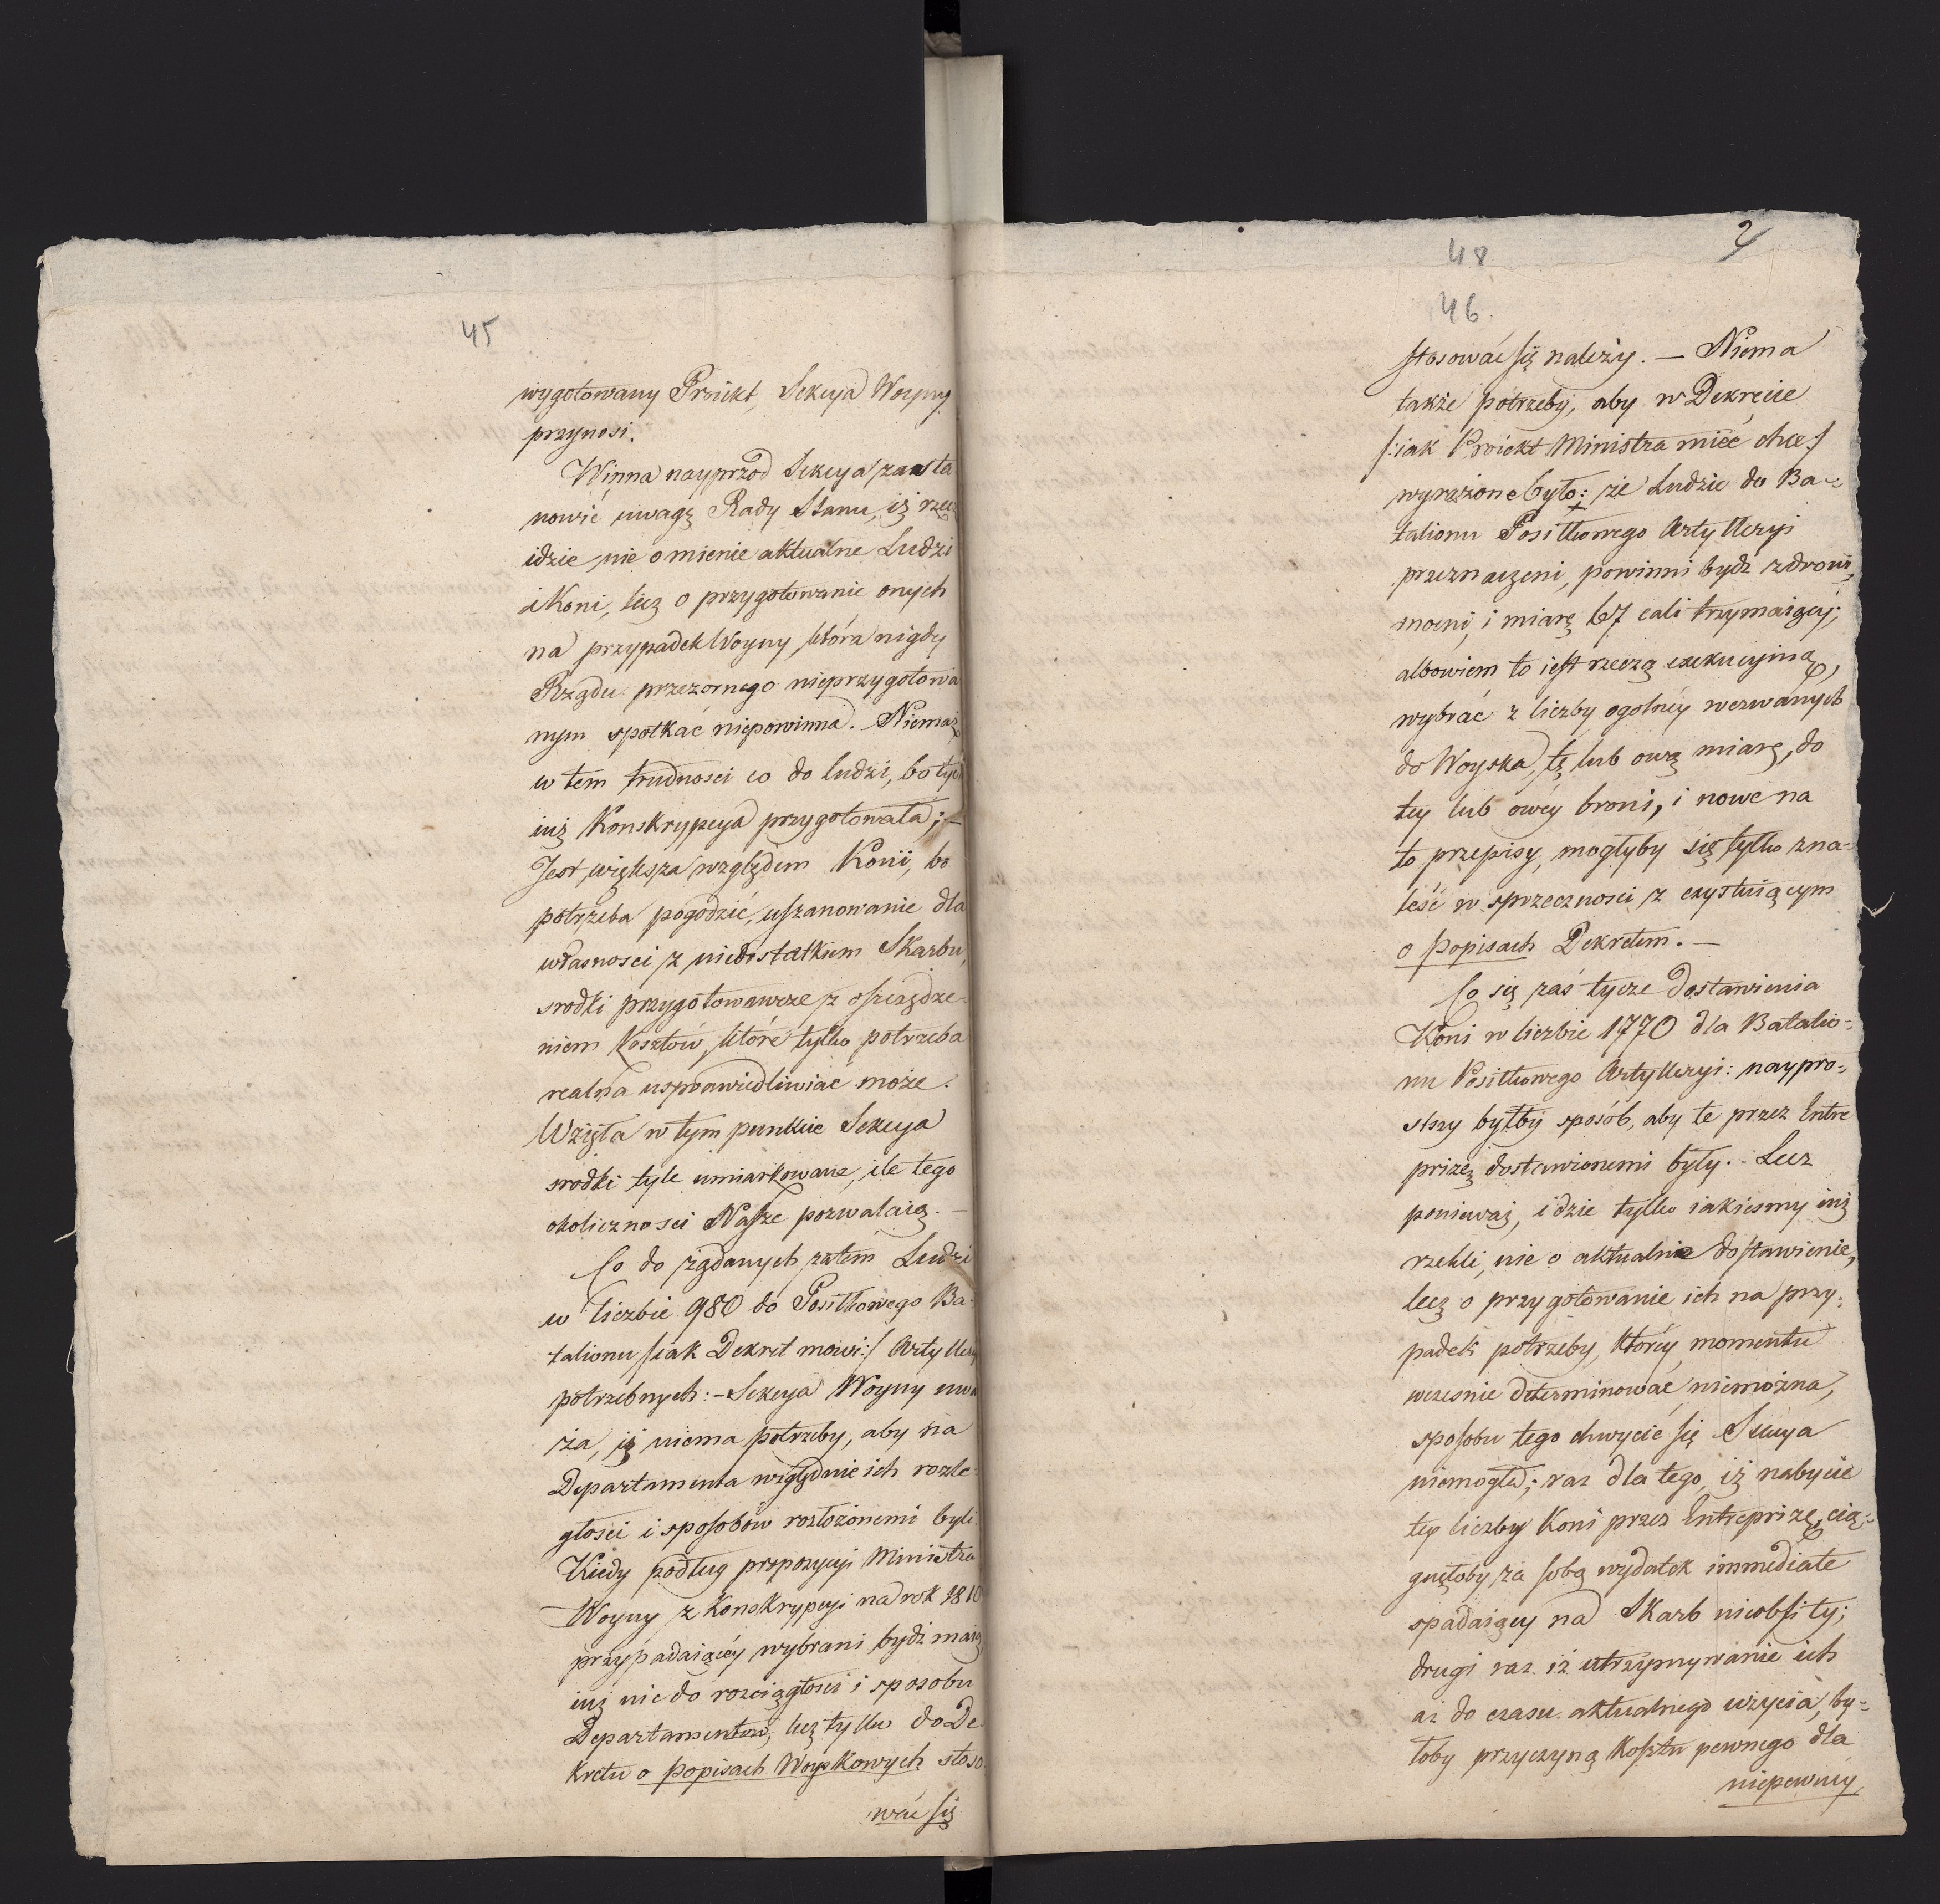 45
wygotowany Proiekt, Sekcya Woyny
przynosi.
Winna nayprzod Sekcya zasta
nowić uwagę Rady Stanu, iż rzecz
idzie nie o mienie aktualne Ludzi
i Koni, lecz o przygotowanie onych
na przypadek Woyny, która nigdy
Rządu przezornego nieprzygotowa
nym spotkać niepowinna. Niemasz
w tem trudności co do ludzi, bo tych
iuż Konskrypcya przygotowała; —
Jest większa względem Koni, bo
potrzeba pogodzić, uszanowanie dla
własności z niedostatkiem Skarbu,
srodki przygotowawcze z oszczędze-
niem Kosztów, które tylko potrzeba
realna usprawiedliwiać może.
Wzięła w tym punkcie Sekcya
srodki tyle umiarkowane, ile tego
okoliczności Nasze pozwalaią. —
Co do żądanych zatem Ludzi
w liczbie 980 do Posiłkowego Ba-
talionu /iak Dekret mowi:/ Artylleryi
potrzebnych: — Sekcya Woyny uwa
ża, iż niema potrzeby, aby na
Departamenta względnie ich rozle-
głości i sposobów rozłożonemi byli.
Kiedy podług propozycyi Ministra
Woyny z Konskrypcyi na rok 1810
przypadaiącéy wybrani bydź maią,
iuż nie do rozciągłości i sposobu
Departamentow, lecz tylko do De-
kretu o popisach Woyskowych stoso-
wać się
2
48
46.
stosować się należy. — Niema
także potrzeby, aby w Dekrecie
/:iak Proiekt Ministra mieć chce:/
wyrażone było: że Ludzie do Ba-
talionu Posiłkowego Artylleryi
przeznaczeni, powinni bydź zdrowi,
mocni, i miarę 67 cali trzymaiący;
albowiem to iest rzeczą exekucyiną,
wybrać z liczby ogolnéy wezwanych
do Woyska, tę lub ową miarę, do
tey lub owéy broni, i nowe na
to przepisy, mogłyby się tylko zna-
leść w sprzeczności z exystuiącym
o popisach Dekretem. —
Co się zaś tycze dostawienia
Koni w liczbie 1770 dla Batalio-
nu Posiłkowego Artylleryi: naypro-
stszy byłby sposób, aby te przez Entre
prizę dostawionemi były. Lecz
ponieważ, idzie tylko iakieśmy iuż
rzekli, nie o aktualne dostawienie,
lecz o przygotowanie ich na przy-
padek potrzeby, któréy momentu
wczesnie determinować niemożna,
sposobu tego chwycić się Sekcya
niemogła; raz dla tego, iż nabycie
tey liczby Koni przez Entreprizę, cią-
gnęłoby za sobą wydatek immediate
spadaiący na Skarb nieobfity;
drugi raz iż utrzymywanie ich
aż do czasu aktualnego użycia, by-
łoby przyczyną Kosztu pewnego dla
niepewnéy